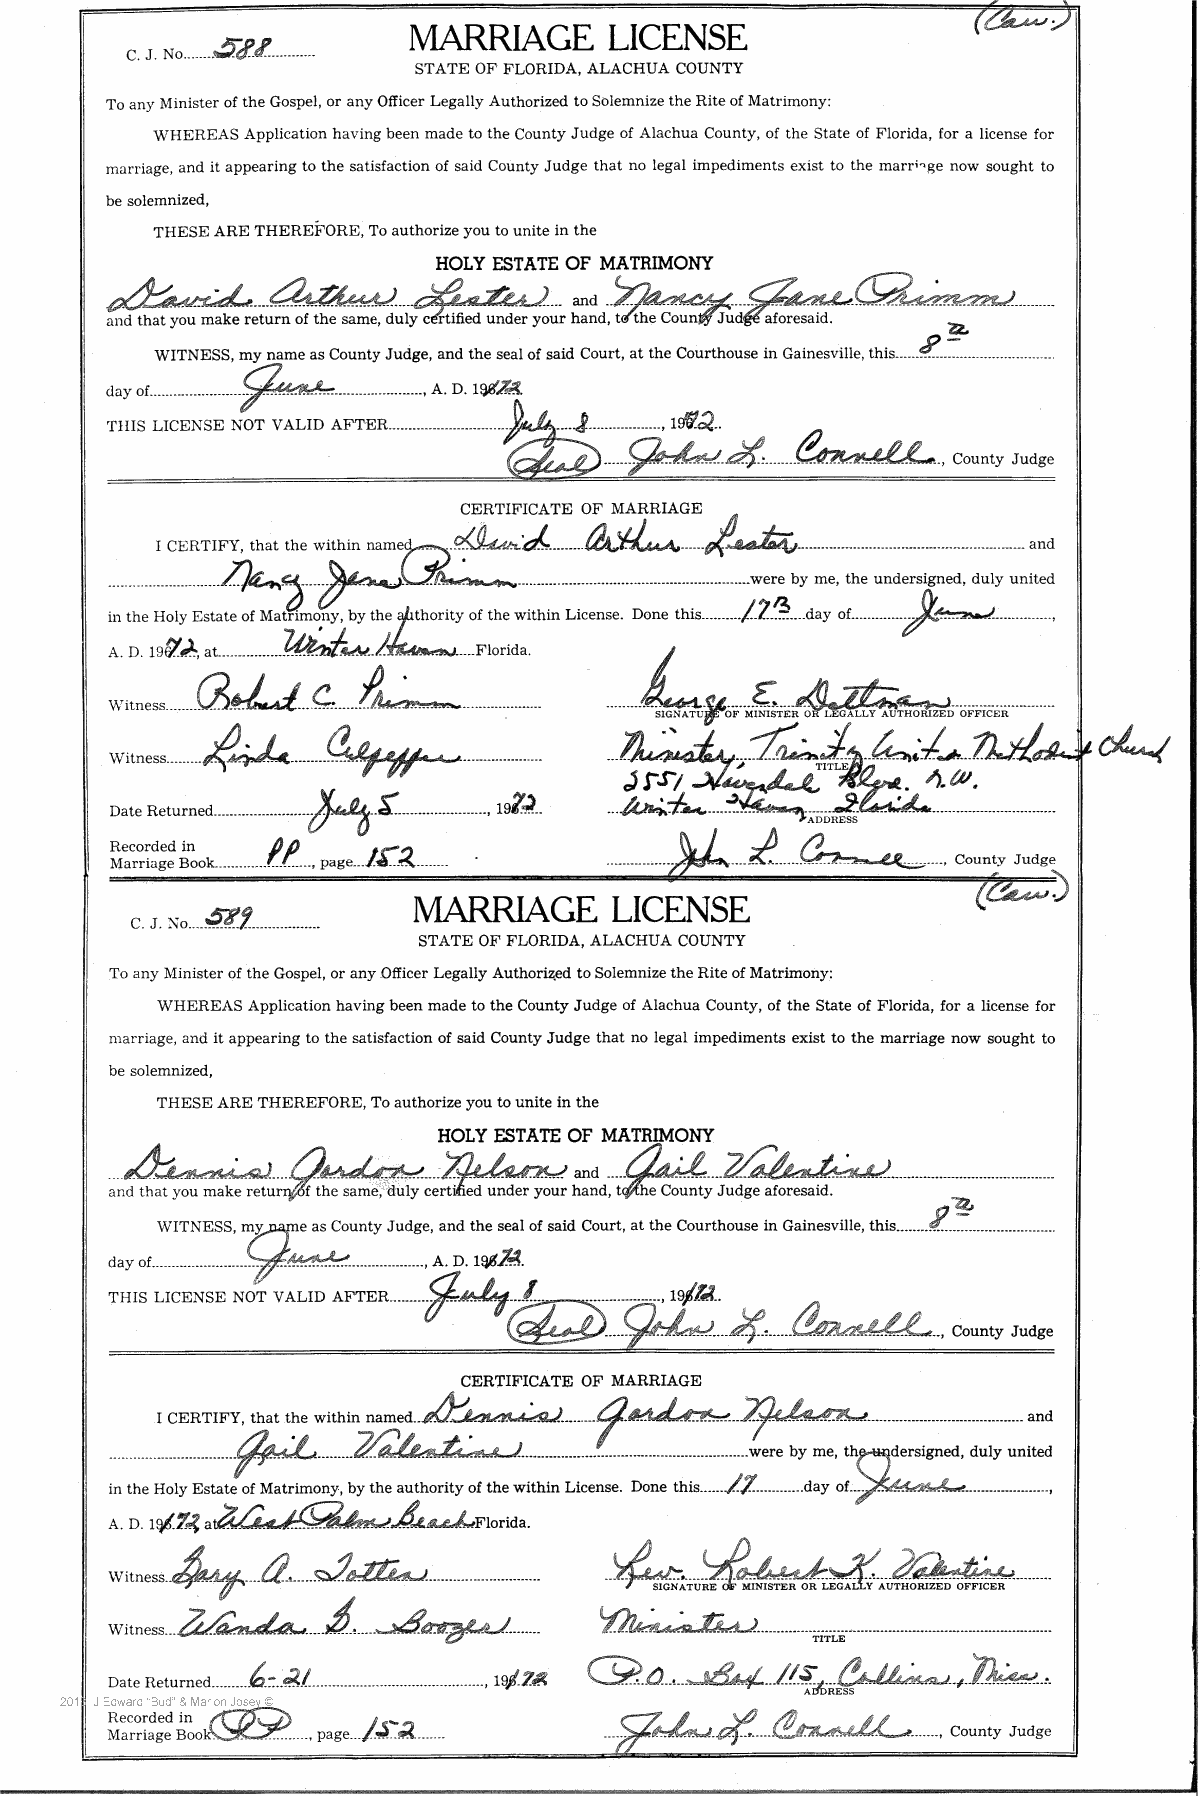 (Cau.)
C. J. No. 588
MARRIAGE LICENSE
STATE OF FLORIDA, ALACHUA COUNTY
To any Minister of the Gospel, or any Officer Legally Authorized to Solemnize the Rite of Matrimony:
WHEREAS Application having been made to the County Judge of Alachua County, of the State of Florida, for a license for
marriage, and it appearing to the satisfaction of said County Judge that no legal impediments exist to the marriage now sought to
be solemnized,
THESE ARE THEREFORE, To authorize you to unite in the
HOLY ESTATE OF MATRIMONY
David Arthur Lester and Nancy Jane Primm
and that you make return of the same, duly certified under your hand, to the County Judge aforesaid.
WITNESS, my name as County Judge, and the seal of said Court, at the Courthouse in Gainesville, this 8th
day of June, A. D. 1972
THIS LICENSE NOT VALID AFTER July 8, 1972.
(Seal) John L. Connell, County Judge
CERTIFICATE OF MARRIAGE
I CERTIFY, that the within named David Arthur Lester and
Nancy Jane Primm were by me, the undersigned, duly united
in the Holy Estate of Matrimony, by the authority of the within License. Done this 17th day of June,
A. D. 1972, at Winter Haven Florida.
Witness Robert C. Primm
George E. Dottman
SIGNATURE OF MINISTER OR LEGALLY AUTHORIZED OFFICER
Witness Linda Culpepper
Minister, Trinity United Methodist Church
TITLE
2551 Havendale Blvd. N.W.
Date Returned July 5, 1972
Winter Haven, Florida
ADDRESS
Recorded in
Marriage Book PP, page 152
John L. Connell, County Judge
(Cau.)
C. J. No. 589
MARRIAGE LICENSE
STATE OF FLORIDA, ALACHUA COUNTY
To any Minister of the Gospel, or any Officer Legally Authorized to Solemnize the Rite of Matrimony:
WHEREAS Application having been made to the County Judge of Alachua County, of the State of Florida, for a license for
marriage, and it appearing to the satisfaction of said County Judge that no legal impediments exist to the marriage now sought to
be solemnized,
THESE ARE THEREFORE, To authorize you to unite in the
HOLY ESTATE OF MATRIMONY
Dennis Gordon Nelson and Gail Valentine
and that you make return of the same, duly certified under your hand, to the County Judge aforesaid.
WITNESS, my name as County Judge, and the seal of said Court, at the Courthouse in Gainesville, this 8th
day of June, A. D. 1972.
THIS LICENSE NOT VALID AFTER July 8, 1972.
(Seal) John L. Connell, County Judge
CERTIFICATE OF MARRIAGE
I CERTIFY, that the within named Dennis Gordon Nelson and
Gail Valentine were by me, the undersigned, duly united
in the Holy Estate of Matrimony, by the authority of the within License. Done this 17 day of June,
A. D. 1972, at West Palm Beach Florida.
Witness Gary A. Totten
Rev. Robert K. Valentine
SIGNATURE OF MINISTER OR LEGALLY AUTHORIZED OFFICER
Witness Wanda G. Boozer
Minister
TITLE
Date Returned 6-21, 1972
P.O. Box 115, Collins, Miss.
ADDRESS
J Edward "Bud" & Marion Josey ©
Recorded in
Marriage Book PP, page 152
John L. Connell, County Judge